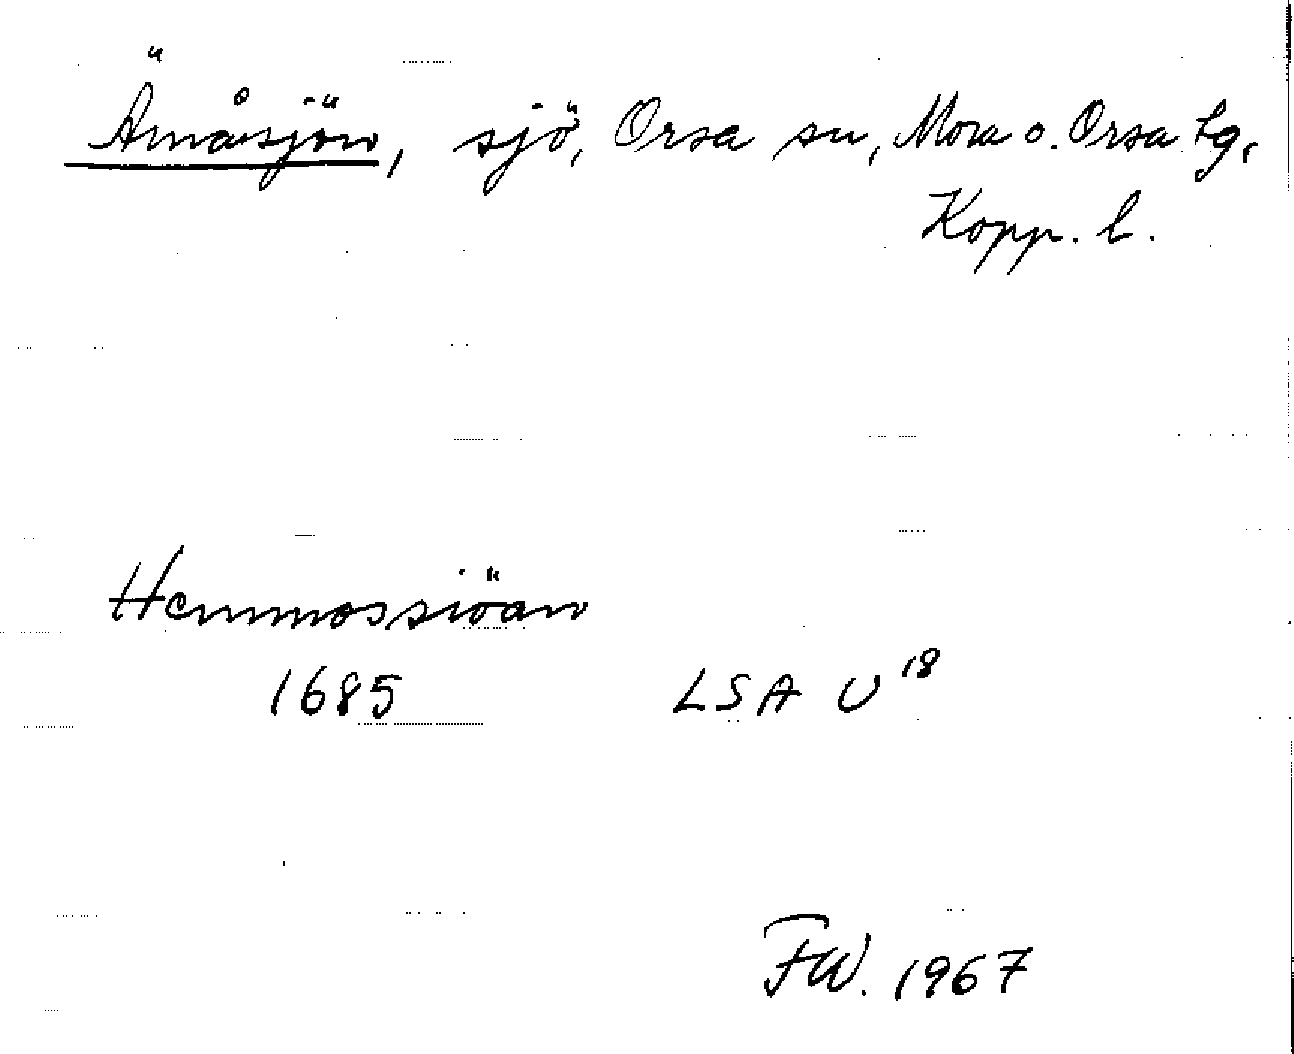 Ämåsjön, sjö, Orsa sn, Mora o. Orsa tg,
Kopp. l.
Hemmossiöan
1685 LSA U 18
FW. 1967